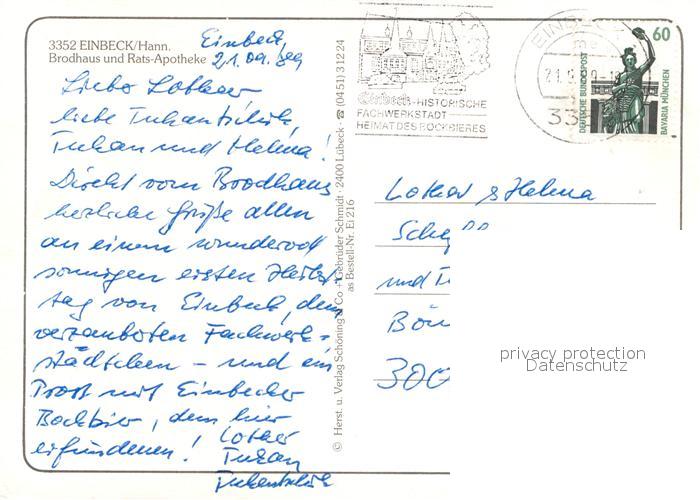 3352 EINBECK/Hann.
Brodhaus und Rats-Apotheke
Einbeck,
21.09.89
Liebe Lothar
liebe
Tukan und Helma!
Direkt vom Broodhaus
herzliche Grüße allen
an einem wundervoll
sonnigen ersten Herbst-
tag von Einbeck, dem
verzauberten Fachwerk-
städtchen – und ein
Prost mit Einbecker
Bockbier, dem hier
erfundenen!
Lothar
Tukan
© Herst. u. Verlag Schöning & Co + Gebrüder Schmidt · 2400 Lübeck · ☎ (04 51) 3 12 24
as Bestell-Nr. Ei 216
Einbeck - HISTORISCHE
FACHWERKSTADT
HEIMAT DES BOCKBIERES
EINBECK
33
60
DEUTSCHE BUNDESPOST
BAVARIA MÜNCHEN
Lothar & Helma
und
300
privacy protection
Datenschutz